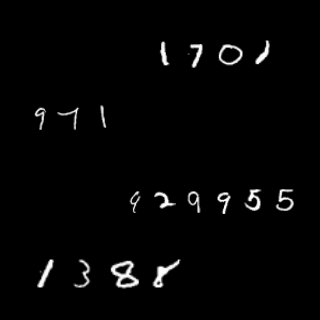 1701
971
929955
1388